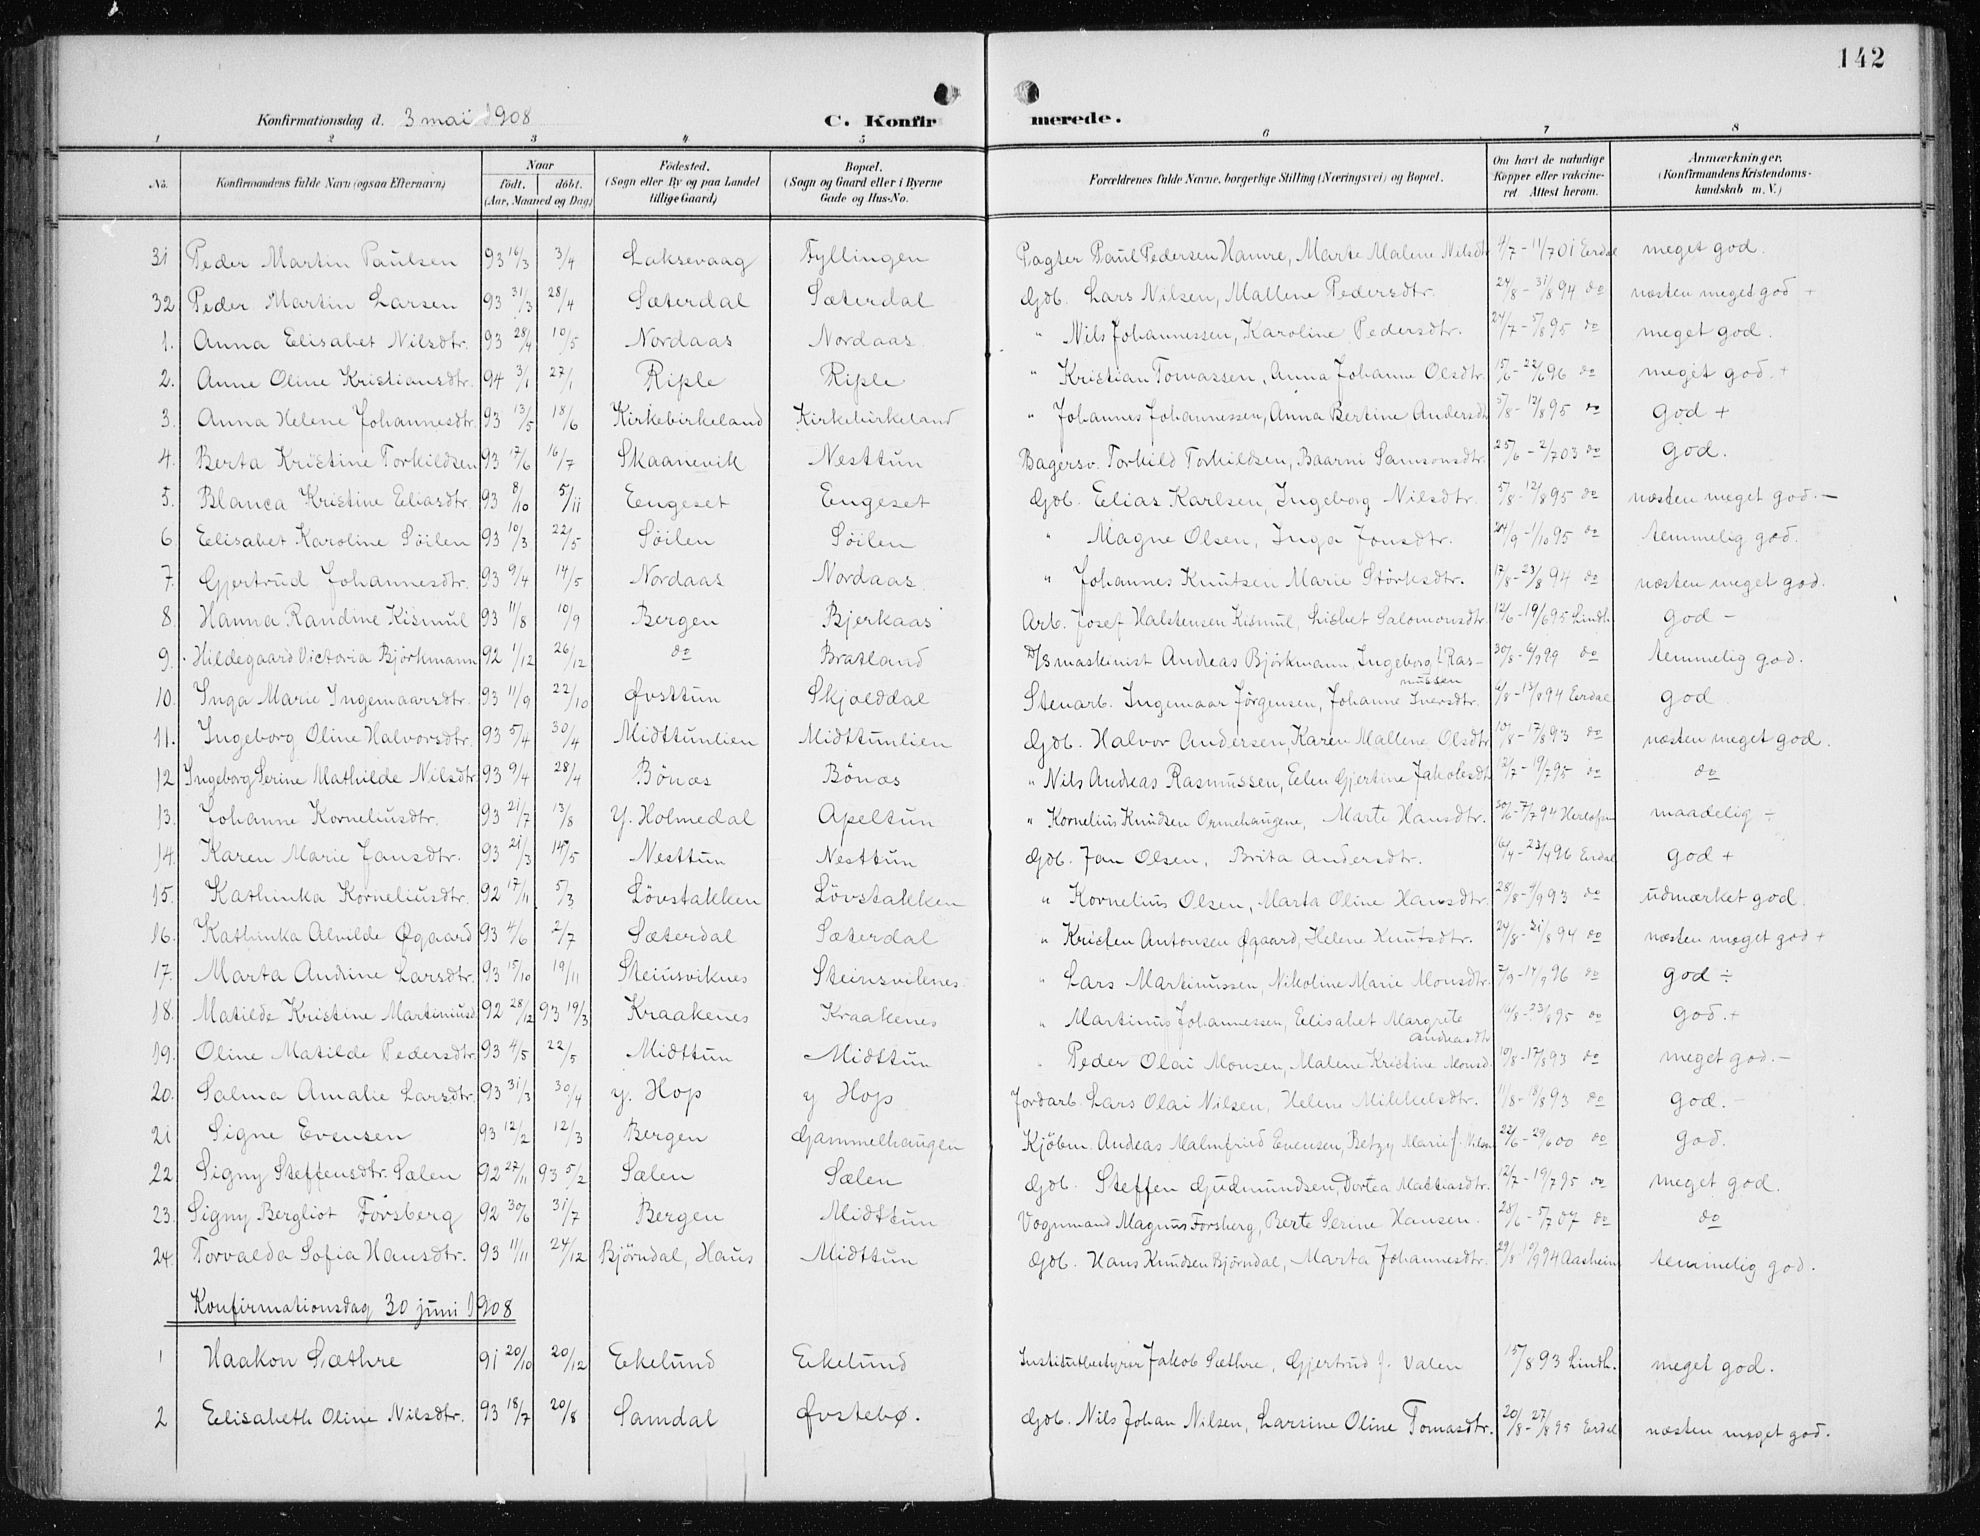 142
Konfirmationsdag d. 3 mai 1908 C. Konfirmerede.
1 2 3 4 5 6 7 8
No. Konfirmandens fulde Navn (ogsaa Efternavn) Naar født. døbt. (Aar, Maaned og Dag) Födested. (Sogn eller By og paa Landet tillige Gaard) Bopæl. (Sogn og Gaard eller i Byerne Gade og Hus-No. Forældrenes fulde Navne, borgerlige Stilling (Næringsvei) og Bopæl. Om havt de naturlige Kopper eller vaccineret. Attest herom. Anmærkninger. (Konfirmandens Kristendomskundskab m. V.)
31 Peder Martin Paulsen 93 16/3 3/4 Laksevaag Fyllingen Pagter Paul Pedersen Hamre, Marte Malene Nilsdtr 4/7 - 11/7 01 Erdal meget god.
32 Peder Martin Larsen 93 31/3 28/4 Sæterdal Sæterdal Gdb. Lars Nilsen, Mallene Pedersdtr. 24/8 - 31/8 94 do næsten meget god +
1. Anna Elisabet Nilsdtr. 93 28/4 10/5 Nordaas Nordaas " Nils Johannessen, Karoline Pedersdtr. 27/7 - 5/8 95 do meget god.
2. Anne Oline Kristiansdtr. 94 3/1 27/1 Riple Riple " Kristian Tomassen, Anna Johanne Olsdtr. 15/6 - 22/6 96 do meget god. +
3. Anna Helene Johannesdtr. 93 13/5 18/6 Kirkebirkeland Kirkebirkeland " Johannes Johannessen, Anna Bertine Andersdtr 5/8 - 12/8 95 do god +
4. Berta Kristine Torkildsen 93 17/6 16/7 Skaanevik Nesttun Bagersv. Torkild Torkildsen, Baarni Samsonsdtr. 25/6 - 2/7 03 do god.
5. Blanca Kristine Eliasdtr 93 8/10 5/11 Engeset Engeset Gdb. Elias Karlsen, Ingeborg Nilsdtr. 5/8 - 12/8 95 do næsten meget god. -
6. Elisabet Karoline Söilen 93 10/3 22/5 Söilen Söilen " Magne Olsen, Inga Jonsdtr. 24/9 - 1/10 95 do temmelig god.
7. Gjertrud Johannesdtr. 93 9/4 14/5 Nordaas Nordaas " Johannes Knutsen Marie Störksdtr. 17/8 - 23/8 94 do næsten meget god.
8. Hanna Randine Kismul 93 11/8 10/9 Bergen Bjerkaas Arb. Josef Halstensen Kismul, Lisbet Salomonsdtr. 12/6 - 19/6 95 Lindh. god -
9. Hildegaard Victoria Björkmann 92 1/12 26/12 do Bratland D/S maskinist Andreas Björkmann, Ingeborg f. Rasmussen 30/8 - 6/9 99 do temmelig god.
10. Inga Marie Ingemaarsdtr. 93 11/9 22/10 Øvsttun Skjolddal Stenarb. Ingemaar Jörgensen, Johanne Iversdtr. 6/8 - 13/8 94 Erdal god
11. Ingeborg Oline Halvorsdtr. 93 5/4 30/4 Midttunlien Midttunlien Gdb. Halvor Andersen, Karen Mallene Olsdtr 10/8 - 17/8 93 do næsten meget god.
12 Ingeborg Serine Mathilde Nilsdtr 93 9/4 28/4 Bönæs Bönæs " Nils Andreas Rasmussen, Elen Gjertine Jakobsdtr 12/7 - 19/7 95 do do
13. Johanne Korneliusdtr. 93 21/7 13/8 Y. Holmedal Apeltun " Kornelius Knudsen Ormehaugene, Marte Hansdtr. 30/6 - 7/7 94 Herlofsen maadelig ÷
14. Karen Marie Jansdtr. 93 21/3 14/5 Nesttun Nesttun Gdb. Jan Olsen, Brita Andersdtr. 16/4 - 23/4 96 Erdal god +
15. Kathinka Korneliusdtr. 92 17/11 5/3 Lövstakken Lövstakken " Kornelius Olsen, Marta Oline Hansdtr. 28/8 - 4/9 93 do udmærket god.
16. Kathinka Alvilde Øgaard 93 4/6 2/7 Sæterdal Sæterdal " Kristen Antonsen Øgaard, Helene Knutsdtr. 24/8 - 31/8 94 do næsten meget god +
17. Marta Andrine Larsdtr. 93 15/10 19/11 Steinsviknes Steinsviknes. " Lars Martinussen, Nikoline Marie Monsdtr. 7/9 - 14/9 96 do god ÷
18. Matilde Kristine Martinusd 92 28/12 93 19/3 Kraakenes Kraakenes " Martinus Johannessen, Elisabet Margrete Andreasdtr 16/8 - 23/8 95 do god. +
19. Oline Matilde Pedersdtr. 93 4/5 22/5 Midttun Midttun " Peder Olai Monsen, Malene Kristine Monsd. 10/8 - 17/8 93 do meget god. -
20. Salma Amalie Larsdtr. 93 31/3 30/4 y. Hop y Hop Jordarb. Lars Olai Nilsen, Helene Mikkelsdtr. 11/8 - 18/8 93 do god. -
21 Signe Evensen 93 12/2 12/3 Bergen Gammelhaugen Kjöbm. Andreas Malmfried Evensen, Betzy Marie f. Nilsen 22/6 - 29/6 00 do god.
22. Signy Steffensdtr. Sælen 92 27/11 93 5/2 Sælen Sælen Gdb. Steffen Gudmundsen, Dortea Mattiasdtr. 12/7 - 19/7 95 do meget god.
23. Signy Bergliot Forsberg 92 30/6 31/7 Bergen Midttun Vognmand Magnus Forsberg, Berte Serine Hansen. 28/6 - 5/7 07 do do
24. Torvalda Sofia Hansdtr. 93 11/11 24/12 Björndal, Haus Midttun Gdb. Hans Knudsen Björndal, Marta Johannesdtr. 29/8 - 10/9 94 Aasheim temmelig god.
Konfirmationsdag 30 juni 1908
1 Haakon Sæthre 91 20/10 20/12 Ekelund Ekelund Institutbestyrer Jakob Sæthre, Gjertrud f. Valen 15/8 93 Lindh. meget god.
2 Elisabeth Oline Nilsdtr. 93 18/7 20/8 Samdal Øvstebø. Gdb. Nils Johan Nilsen, Larsine Oline Tomasdtr. 20/8 - 27/8 95 Erdal næsten meget god.